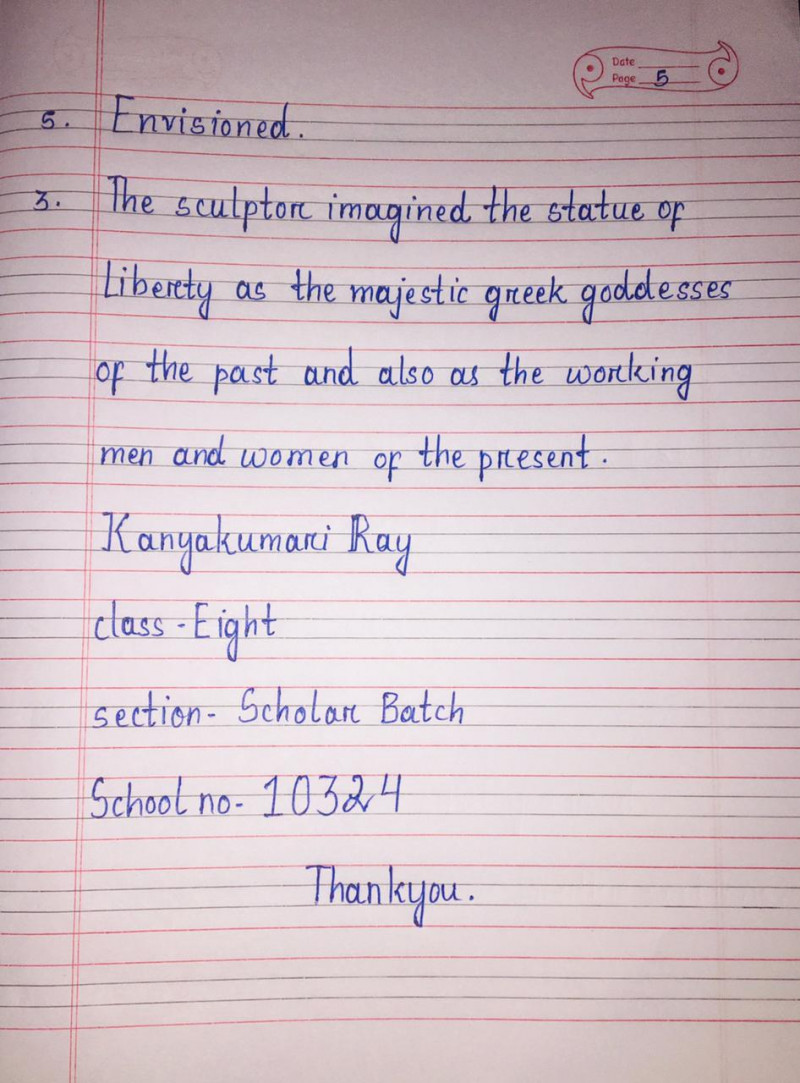 Date
Page 5
5. Envisioned.
3. The sculptor imagined the statue of
Liberty as the majestic greek goddesses
of the past and also as the working
men and women of the present.
Kanyakumari Ray
class - Eight
section - Scholar Batch
School no - 10324
Thankyou.